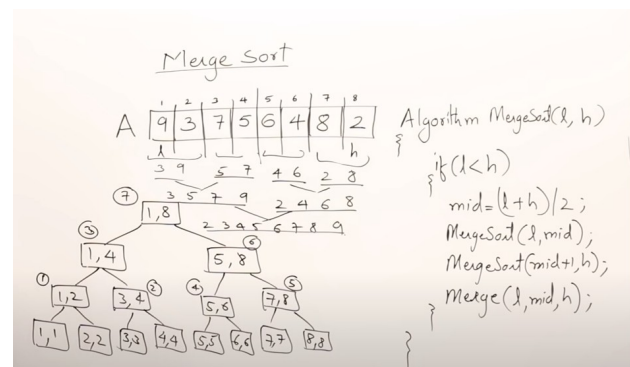 Merge Sort
1 2 3 4 5 6 7 8
A 9 3 7 5 6 4 8 2
l h
3 9 5 7 4 6 2 8
3 5 7 9 2 4 6 8
2 3 4 5 6 7 8 9
⑦ 1,8
③ 1,4 ⑥ 5,8
① 1,2 ② 3,4 ④ 5,6 ⑤ 7,8
1,1 2,2 3,3 4,4 5,5 6,6 7,7 8,8
Algorithm MergeSort(l, h)
{
if(l<h)
{
mid=(l+h)/2;
MergeSort(l,mid);
MergeSort(mid+1,h);
Merge(l,mid,h);
}
}